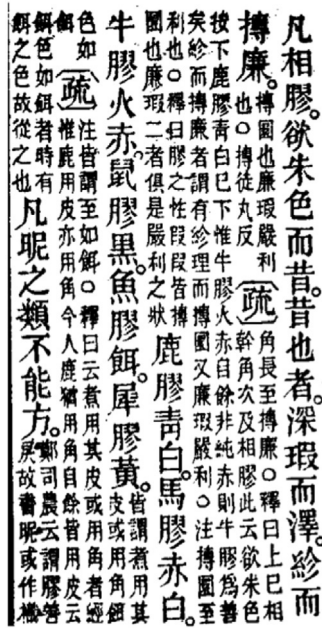 凡相膠。欲朱色而昔。昔也者。深瑕而澤。紾而
摶廉。
摶圜也廉瑕嚴利
也○摶徒丸反
〔疏〕
角長至摶廉○釋曰上巳相
幹角次及相膠此云欲朱色
按下鹿膠青白巳下惟牛膠火赤自餘非純赤則牛膠爲善
矣紾而摶廉者謂有紾理而摶圜又廉瑕嚴利○注摶圜至
利也○釋曰膠之性段段皆摶
圜也廉瑕二者俱是嚴利之狀
鹿膠青白。馬膠赤白。
牛膠火赤。鼠膠黑。魚膠餌。犀膠黃。
皆謂煮用其
皮或用角餌
色如
餌
〔疏〕
注皆謂至如餌○釋曰云煮用其皮或用角者經
惟鹿用皮亦用角今人鹿猶用角自餘皆用皮云
餌色如餌者時有
餌之色故從之也
凡昵之類不能方。
鄭司農云謂膠善
戾故書昵或作樴